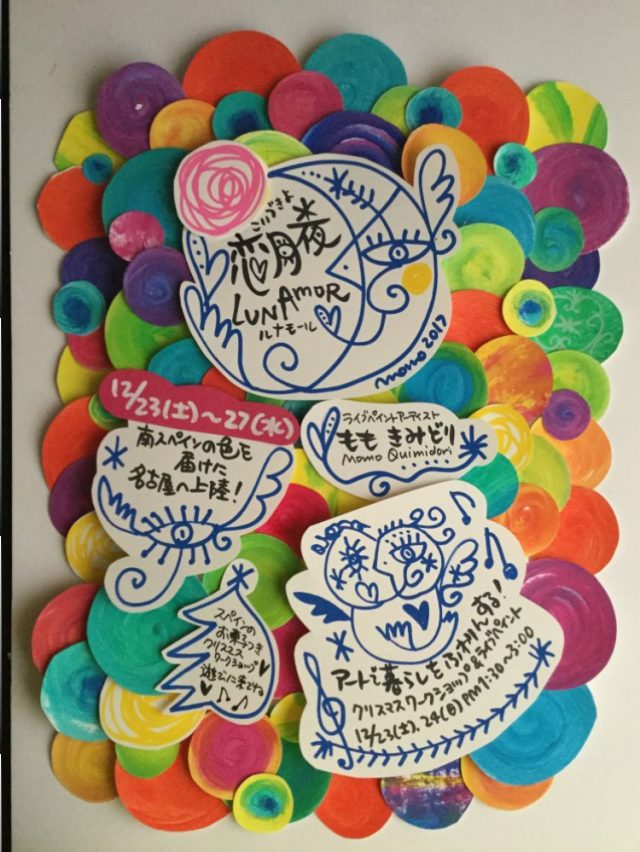 こいづきよ
恋月夜
LUNAMOR
ルナモール
momo 2017
12/23(土)〜27(水)
南スペインの色を
届けに
名古屋へ上陸!
ライブペイントアーティスト
もも きみどり
Momo Quimidori
スペインの
お菓子つき
クリスマス
ワークショップ
遊びに来てね
アートで暮らしをふわりんする!
クリスマスワークショップ&ライブペイント
12/23(土).24(日)pm1:30〜3:00